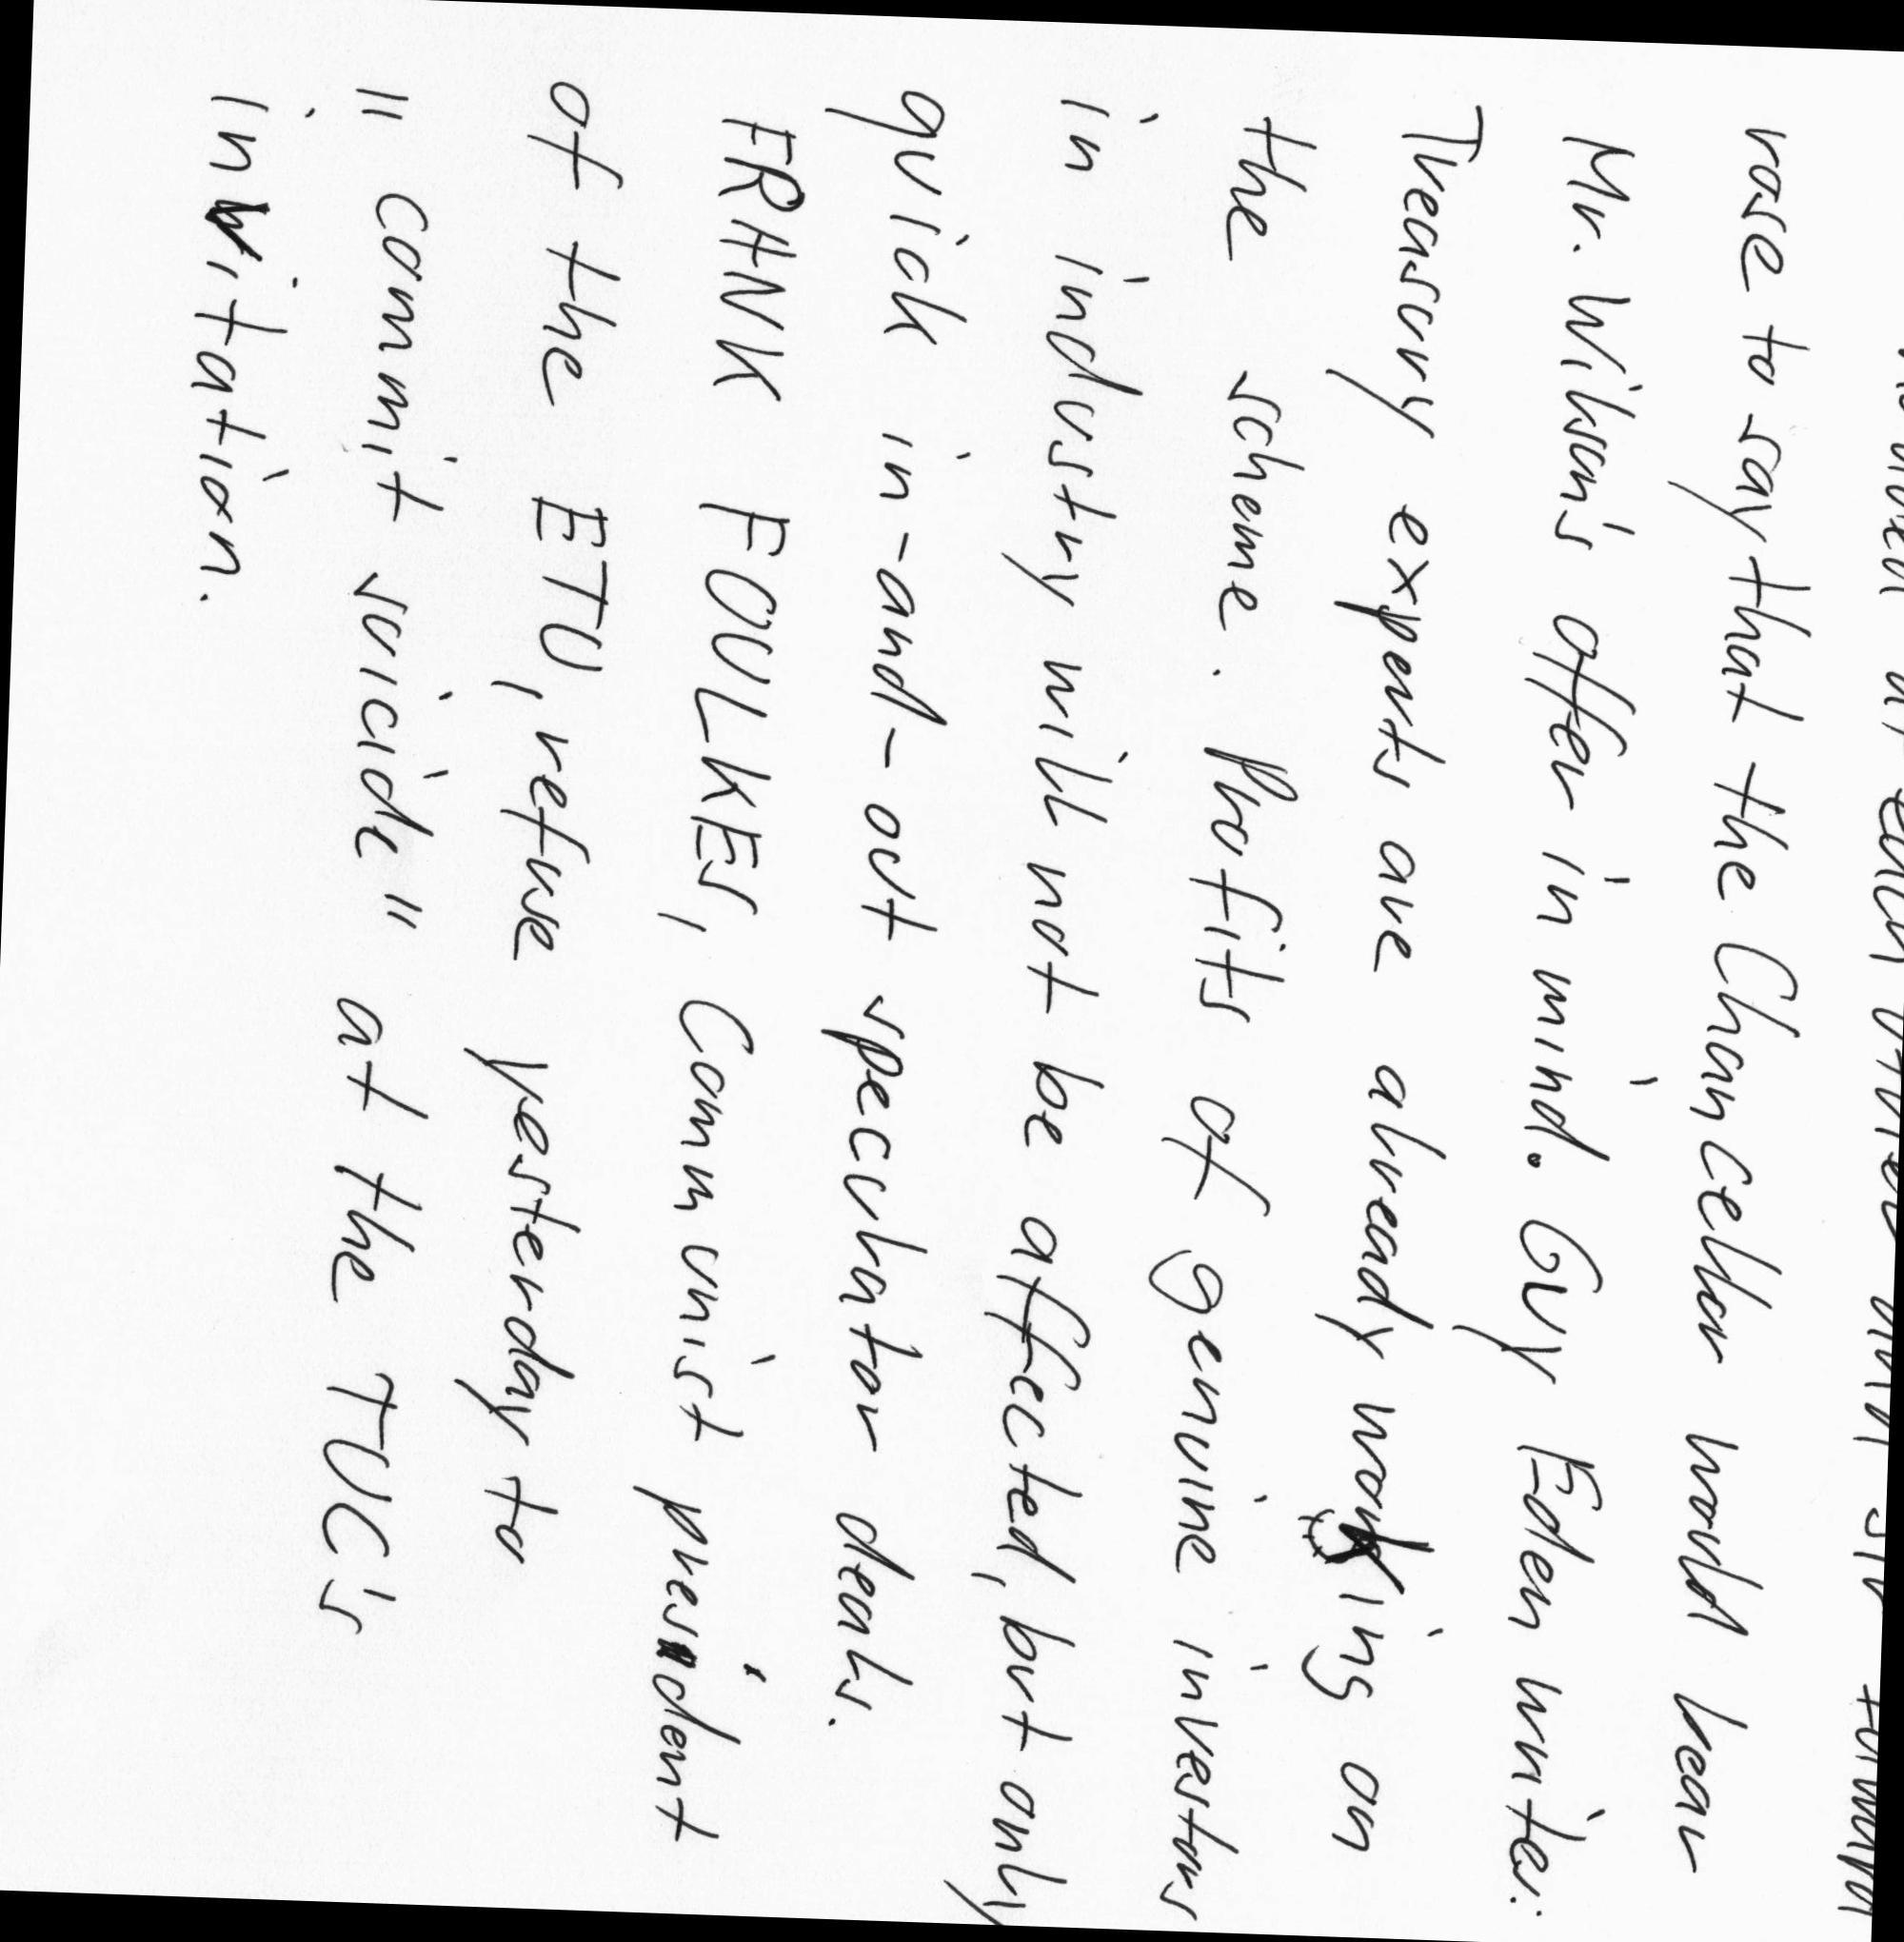 rose to say that the Chancellor would bear
Mr. Wilson's offer in mind. Guy Eden writes:
Treasury experts are already working on
the scheme. Profits of genuine investors
in industry will not be affected, but only
quick in-and-out speculator deals.
FRANK FOULKES, Communist president
of the ETU, refuse yesterday to
"commit suicide" at the TUC's
invitation.